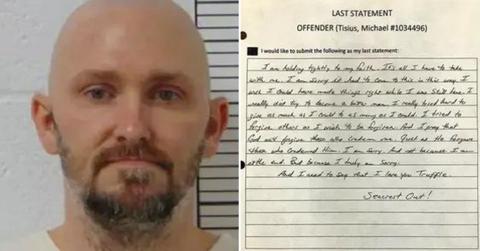 LAST STATEMENT
OFFENDER (Tisius, Michael #1034496)
I would like to submit the following as my last statement:
I am holding tightly to my faith. It's all I have to take
with me. I am sorry it had to come to this in this way. I
wish I could have made things right while I was still here. I
really did try to become a better man. I really tried hard to
give as much as I could to as many as I could. I tried to
forgive others as I wish to be forgiven. And I pray that
God will forgive those who condemn me. Just as He forgave
those who condemned Him. I am sorry. And not because I am
at the end. But because I truly am sorry.
And I need to say that I love you Truffle.
Seacrest Out!